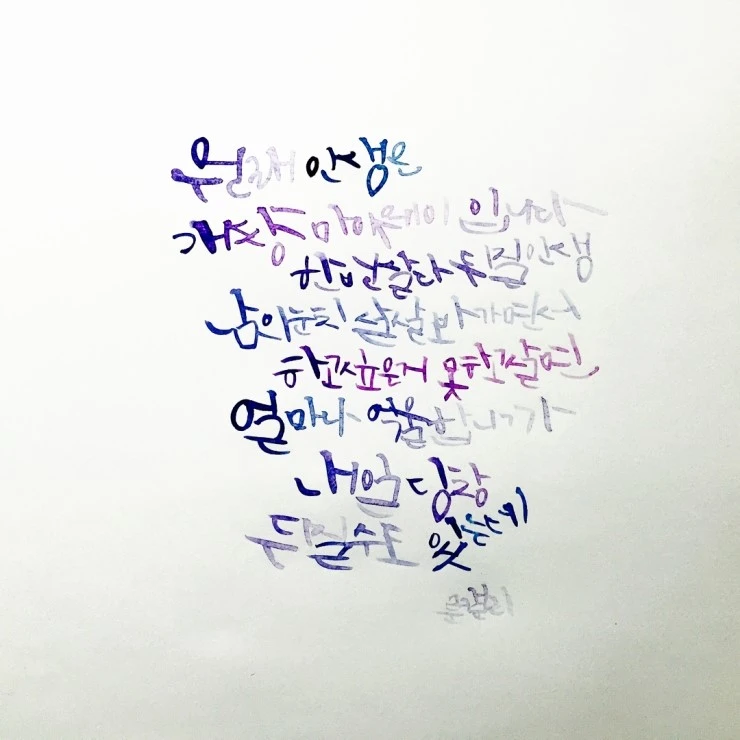 원래 인생은
개썅마이웨이 입니다
한번 살다 뒤질 인생
남의 눈치 살살 봐가면서
하고싶은거 못하고 살면
얼마나 억울합니까
내일 당장
뒤질수도 있는데